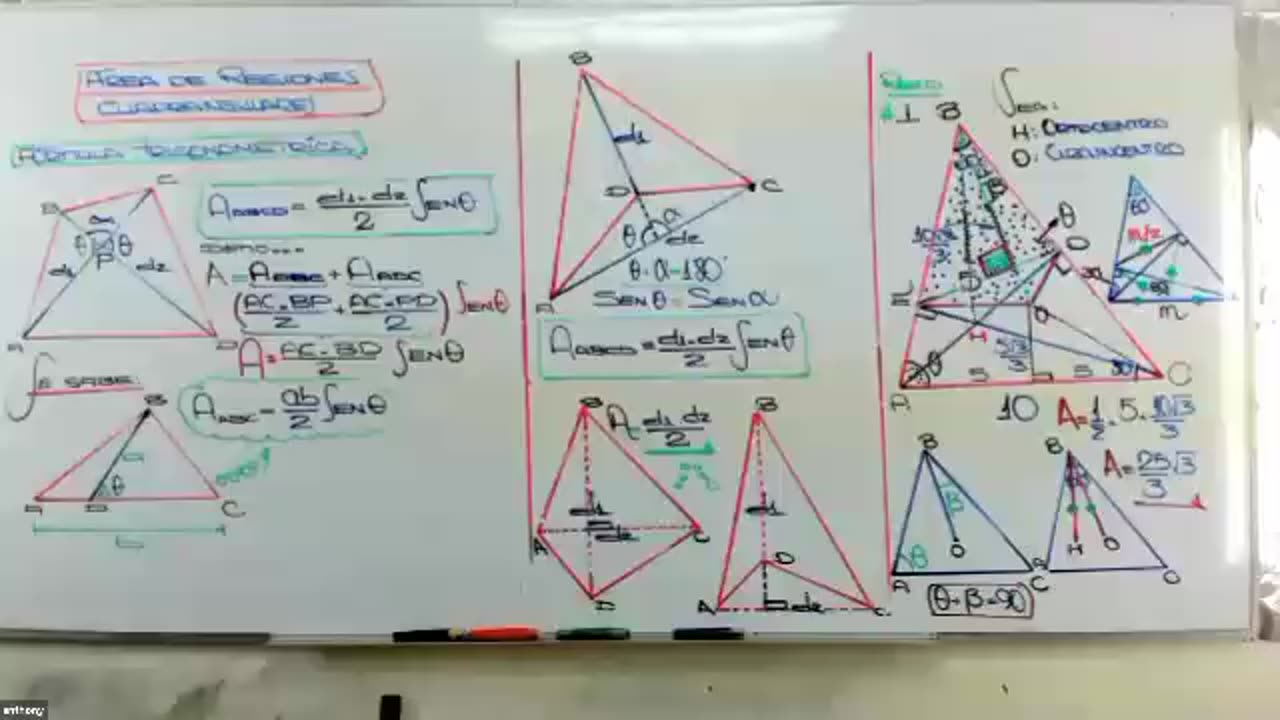 ÁREA DE REGIONES
CUADRANGULARES
FÓRMULA TRIGONOMÉTRICA
B
C
α
θ
θ
P
d1
d2
A
D
A ABCD = d1.d2/2 SENθ
DEMO...
A = A ABC + A ADC
(AC.BP/2 + AC.PD/2) SENθ
A = AC.BD/2 SENθ
SE SABE:
A ABC = ab/2 SENθ
B
a
θ
A
D
C
b
B
d1
D
C
α
θ
d2
A
θ+α=180°
SENθ = SENα
A ABCD = d1.d2/2 SENθ
B
A = d1.d2/2
d1
d2
A
C
D
B
d1
D
A
d2
C
#1
B
SEA:
H: ORTOCENTRO
O: CIRCUNCENTRO
θ
H
O
5√3/3
θ
5
5
A
C
10
A = 1/2 . 5 . 10√3/3
A = 25√3/3
60
m/2
m
B
β
O
θ
A
C
θ+β=90
B
H
O
A
C
anthony